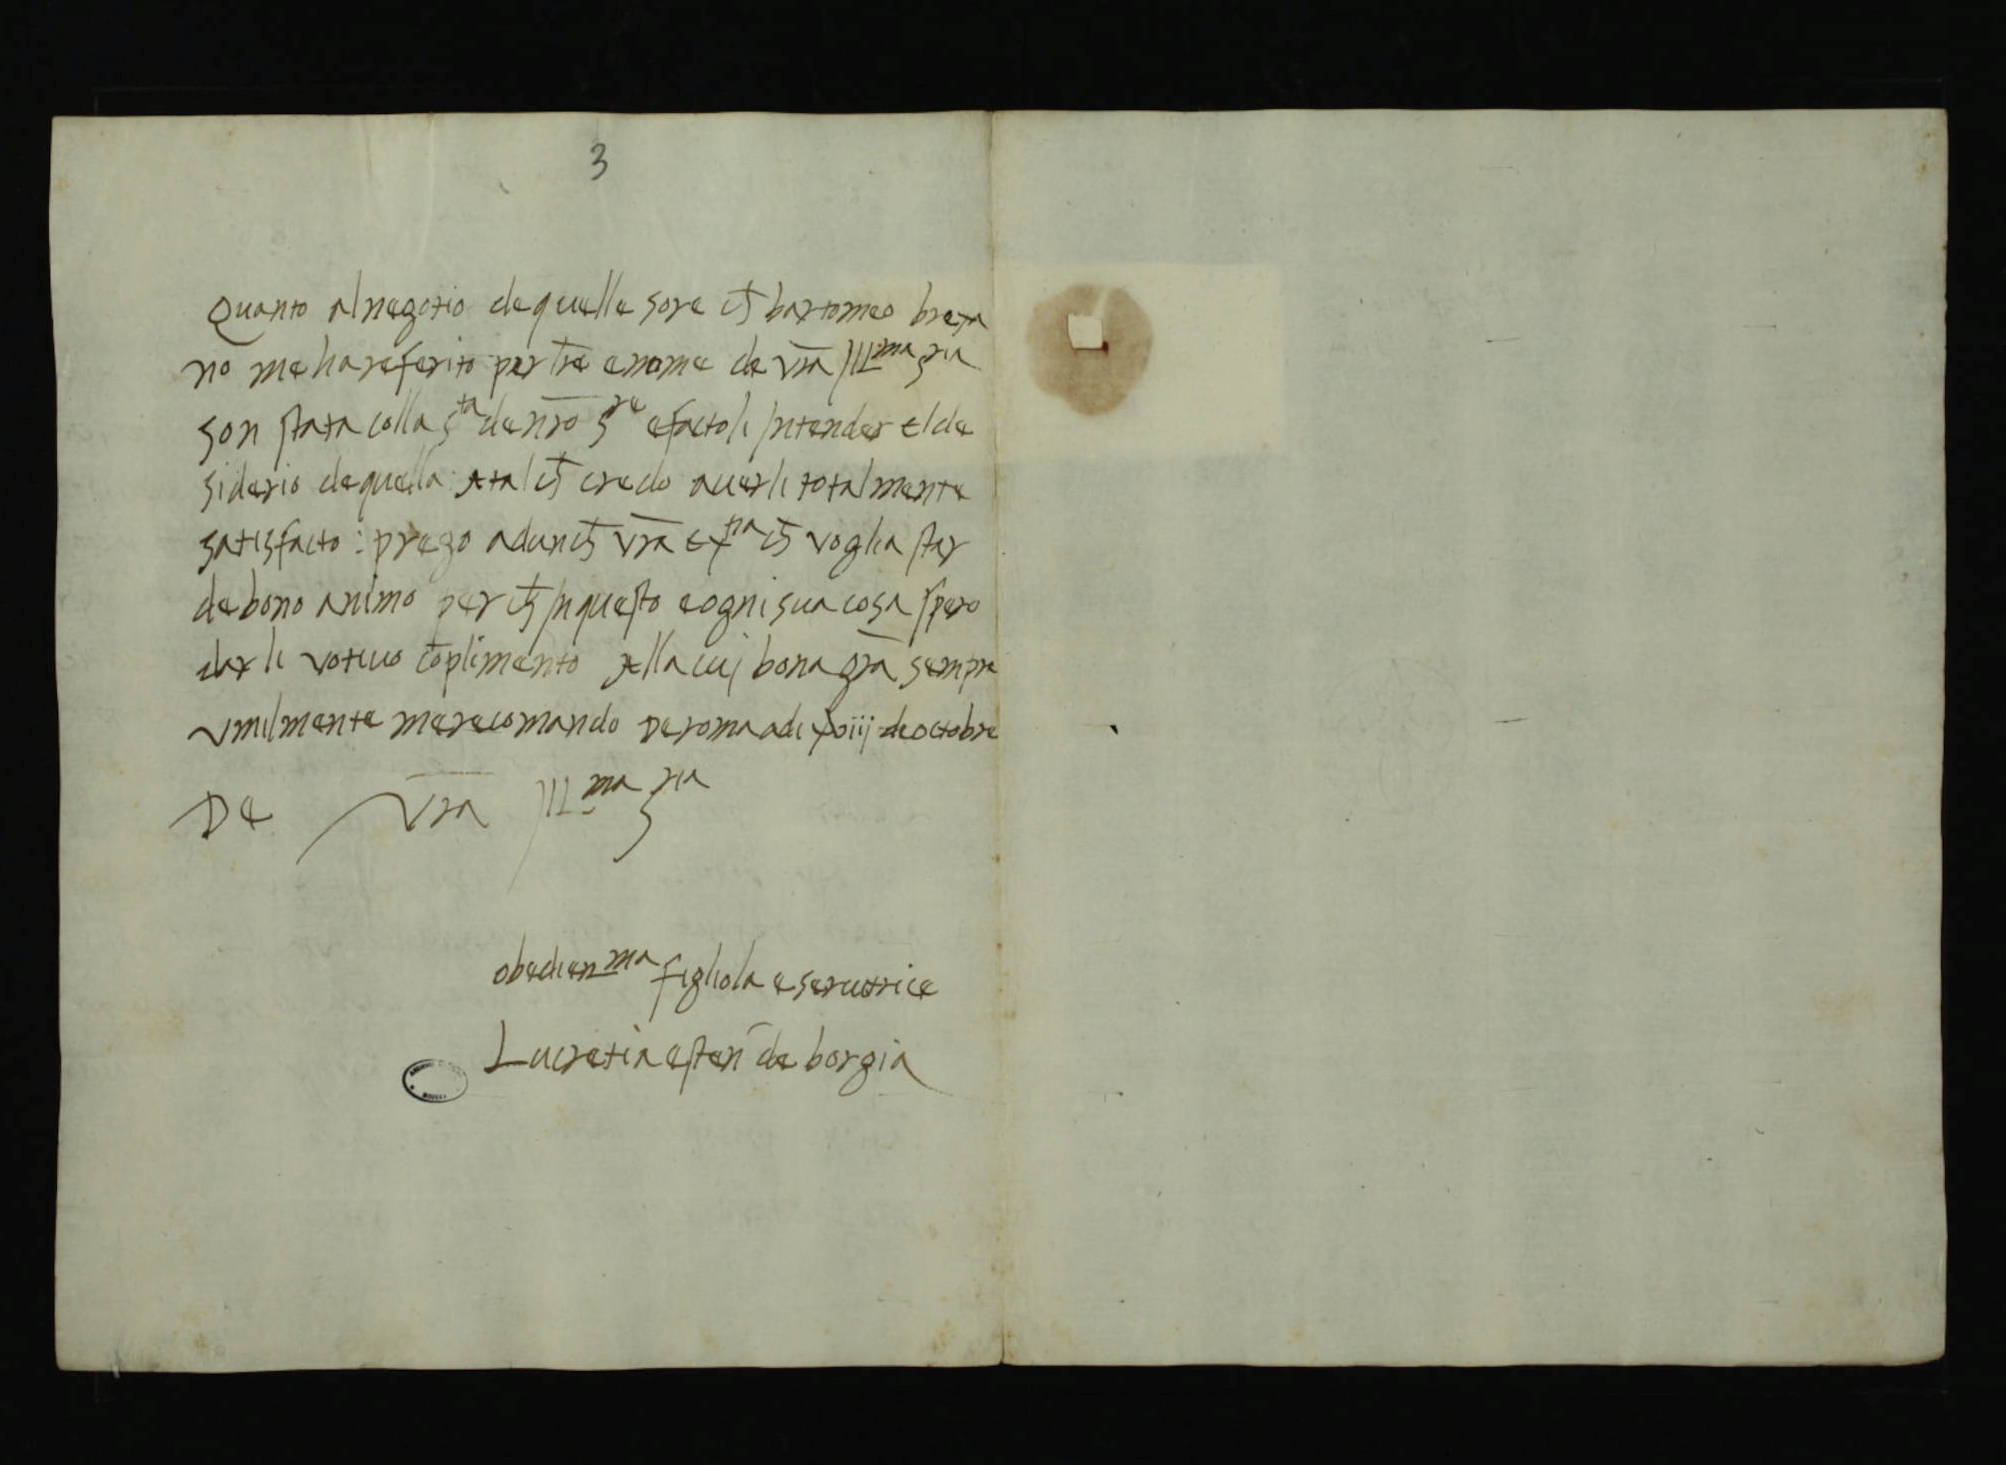 3
Quanto al negotio de quelle sore ch̄ bartomeo breta
no me ha referito per lr̄e e nome de vr̄a Ill^ma S^ria
son stata colla S^ta de nr̄o S^re e factoli intender el de
siderio de quella: A tal ch̄ credo averli totalmente
satisfacto: prego adunch̄ vr̄a Ex^tia ch̄ voglia star
de bono animo per ch̄ in questo e ogni sua cosa spero
darli votivo cōplimento Alla cuj bona gr̄a sempre
umilmente me recomando De roma adi xviij de octobre
De Vr̄a Ill^ma S^ria
obedien^ma figliola e servitrice
Lucretia esten̄ de borgia